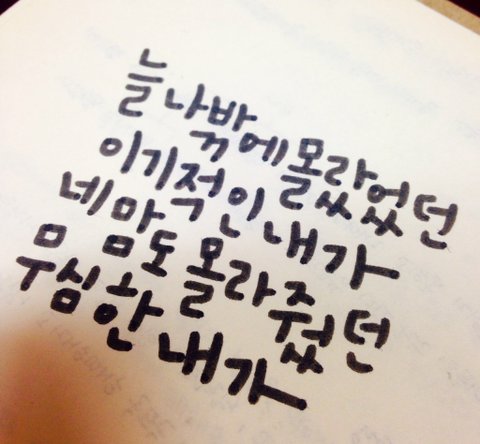 늘 나밖에 몰랐었던
이기적인 내가
네 맘도 몰라줬던
무심한 내가